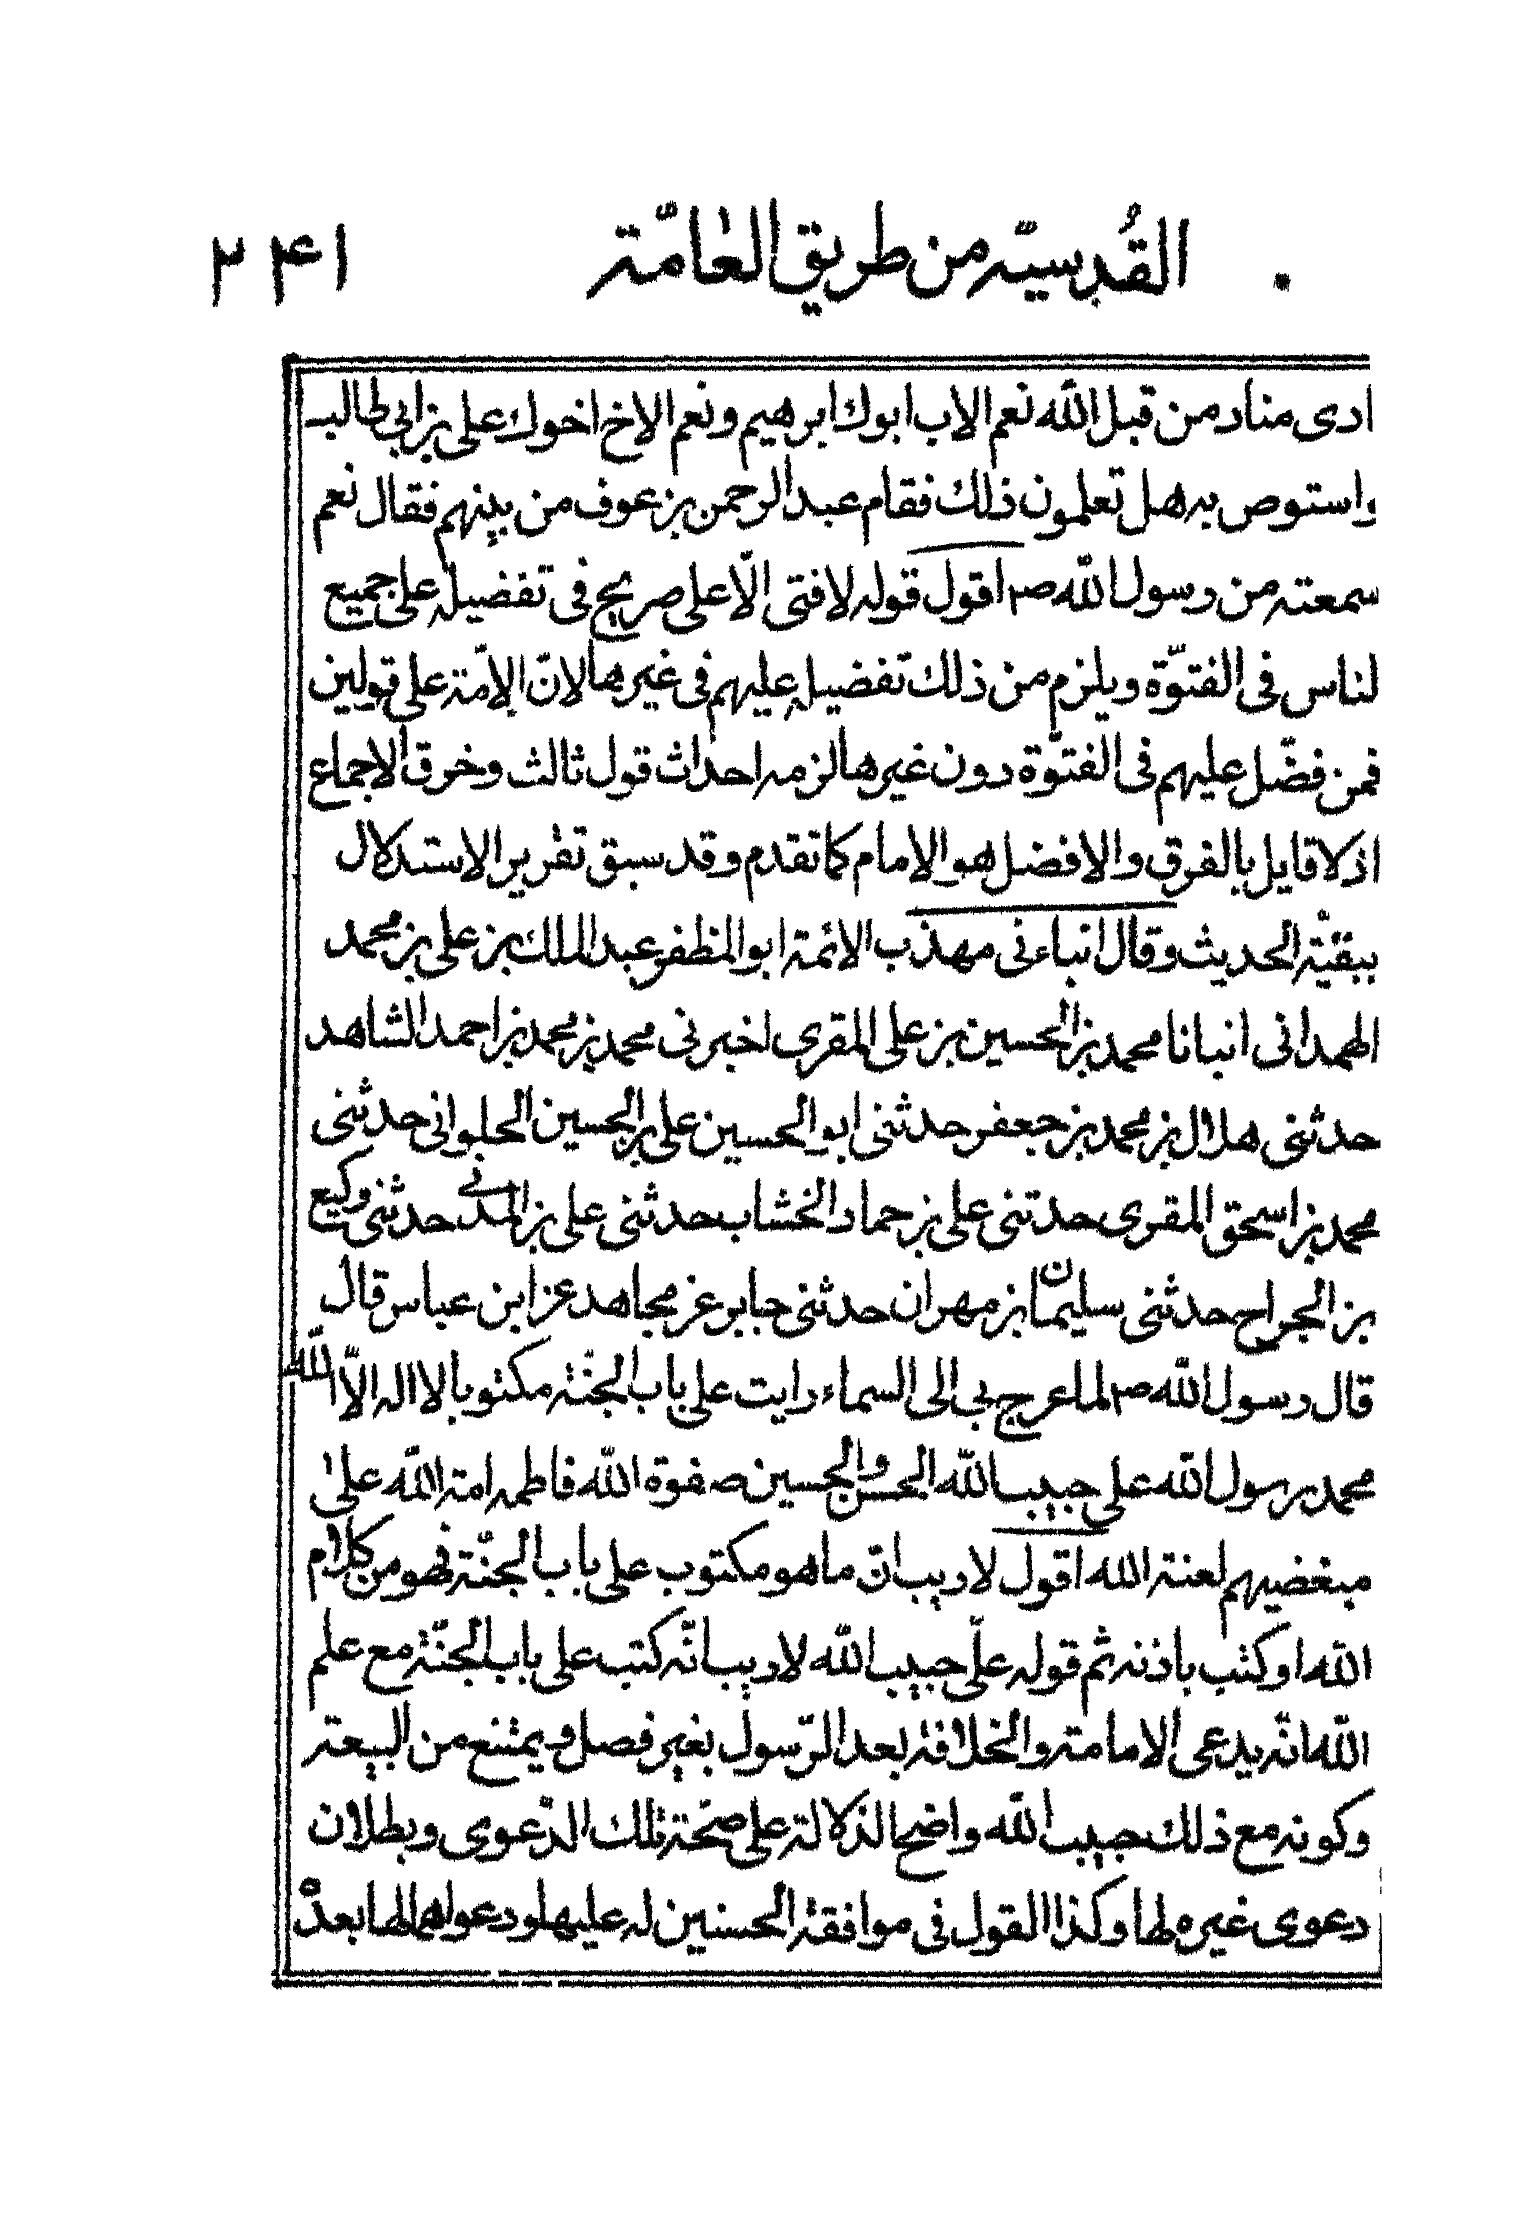 القُدسيّه من طريق العامّة ٢٤١
ادى مناد من قبل الله نعم الاب ابوك ابرهيم ونعم الاخ اخوك على بن ابى طالب
واستوص به هل تعلمون ذلك فقام عبد الرحمن بن عوف من بينهم فقال نعم
سمعته من رسول الله ص اقول قوله لا فتى الّا على صريح فى تفضيله على جميع
لناس فى الفتوّة ويلزم من ذلك تفضيله عليهم فى غيرها لانّ الامّة على قولين
فمن فضّل عليهم فى الفتوّة دون غيرها لزمه احداث قول ثالث وخرق الاجماع
اذ لا قايل بالفرق والافضل هو الامام كما تقدم وقد سبق تقرير الاستدلال
ببقيّة الحديث وقال انباءنى مهذب الائمة ابو المظفر عبد الملك بن على بن محمد
الهمدانى انبانا محمد بن الحسين بن على المقرى اخبرنى محمد بن محمد بن احمد الشاهد
حدثنى هلال بن محمد بن جعفر حدثنى ابو الحسين على بن الحسين الحلوانى حدثنى
محمد بن اسحق المقرى حدثنى على بن حماد الخشاب حدثنى على بن المدنى حدثنى وكيع
بن الجراح حدثنى سليمان بن مهران حدثنى جابر عن مجاهد عن ابن عباس قال
قال رسول الله ص لما عرج بى الى السماء رايت على باب الجنّة مكتوبا لا اله الّا الله
محمد رسول الله على حبيب الله الحسن والحسين صفوة الله فاطمه امة الله على
مبغضيهم لعنة الله اقول لا ريب انّ ما هو مكتوب على باب الجنّة فهو من كلام
الله او كتب باذنه ثم قوله علىّ حبيب الله لا ريب انّه كتب على باب الجنّة مع علم
الله انّه يدعى الامامة والخلافة بعد الرّسول بغير فصل ويمتنع من البيعة
وكونه مع ذلك حبيب الله واضح الدلالة على صحّة تلك الدّعوى وبطلان
دعوى غيره لها وكذا القول فى موافقة الحسنين له عليها ودعواهما لها بعده